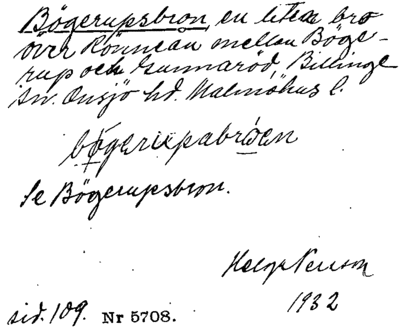 Bögerupsbron, en liten bro
över Rönneån mellan Böge-
rup och Gunnaröd, Billinge
sn. Onsjö hd. Malmöhus l.
bögerupabroen
Se Bögerupsbron.
Helge Nelson
1932
sid. 109. Nr 5708.